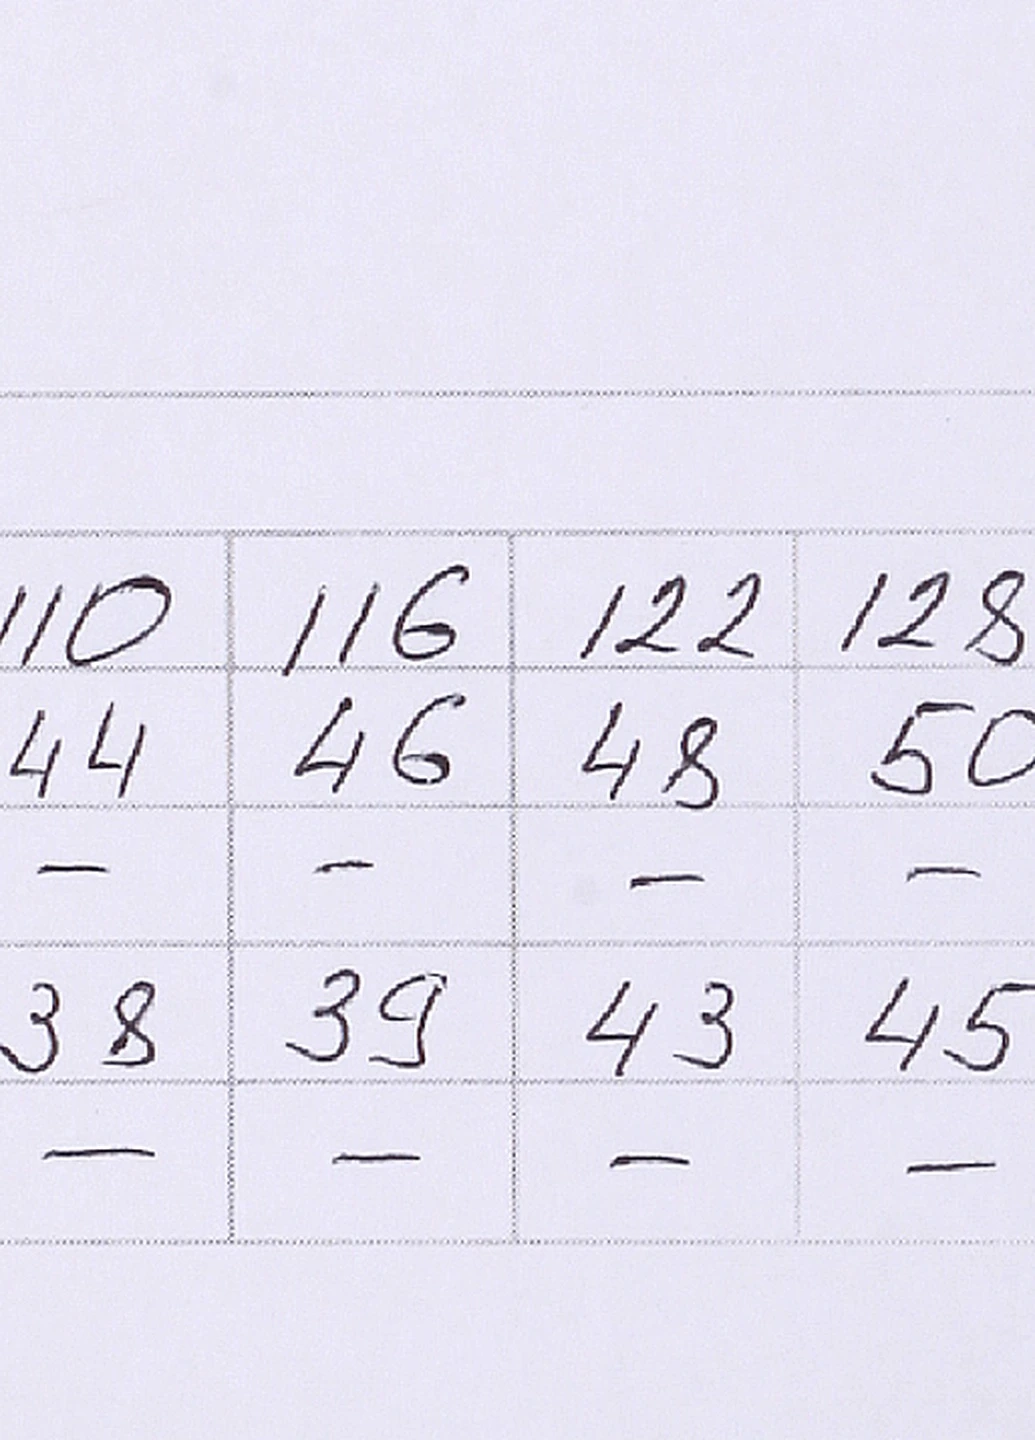 110 116 122 128
44 46 48 50
— - — —
38 39 43 45
— — — —